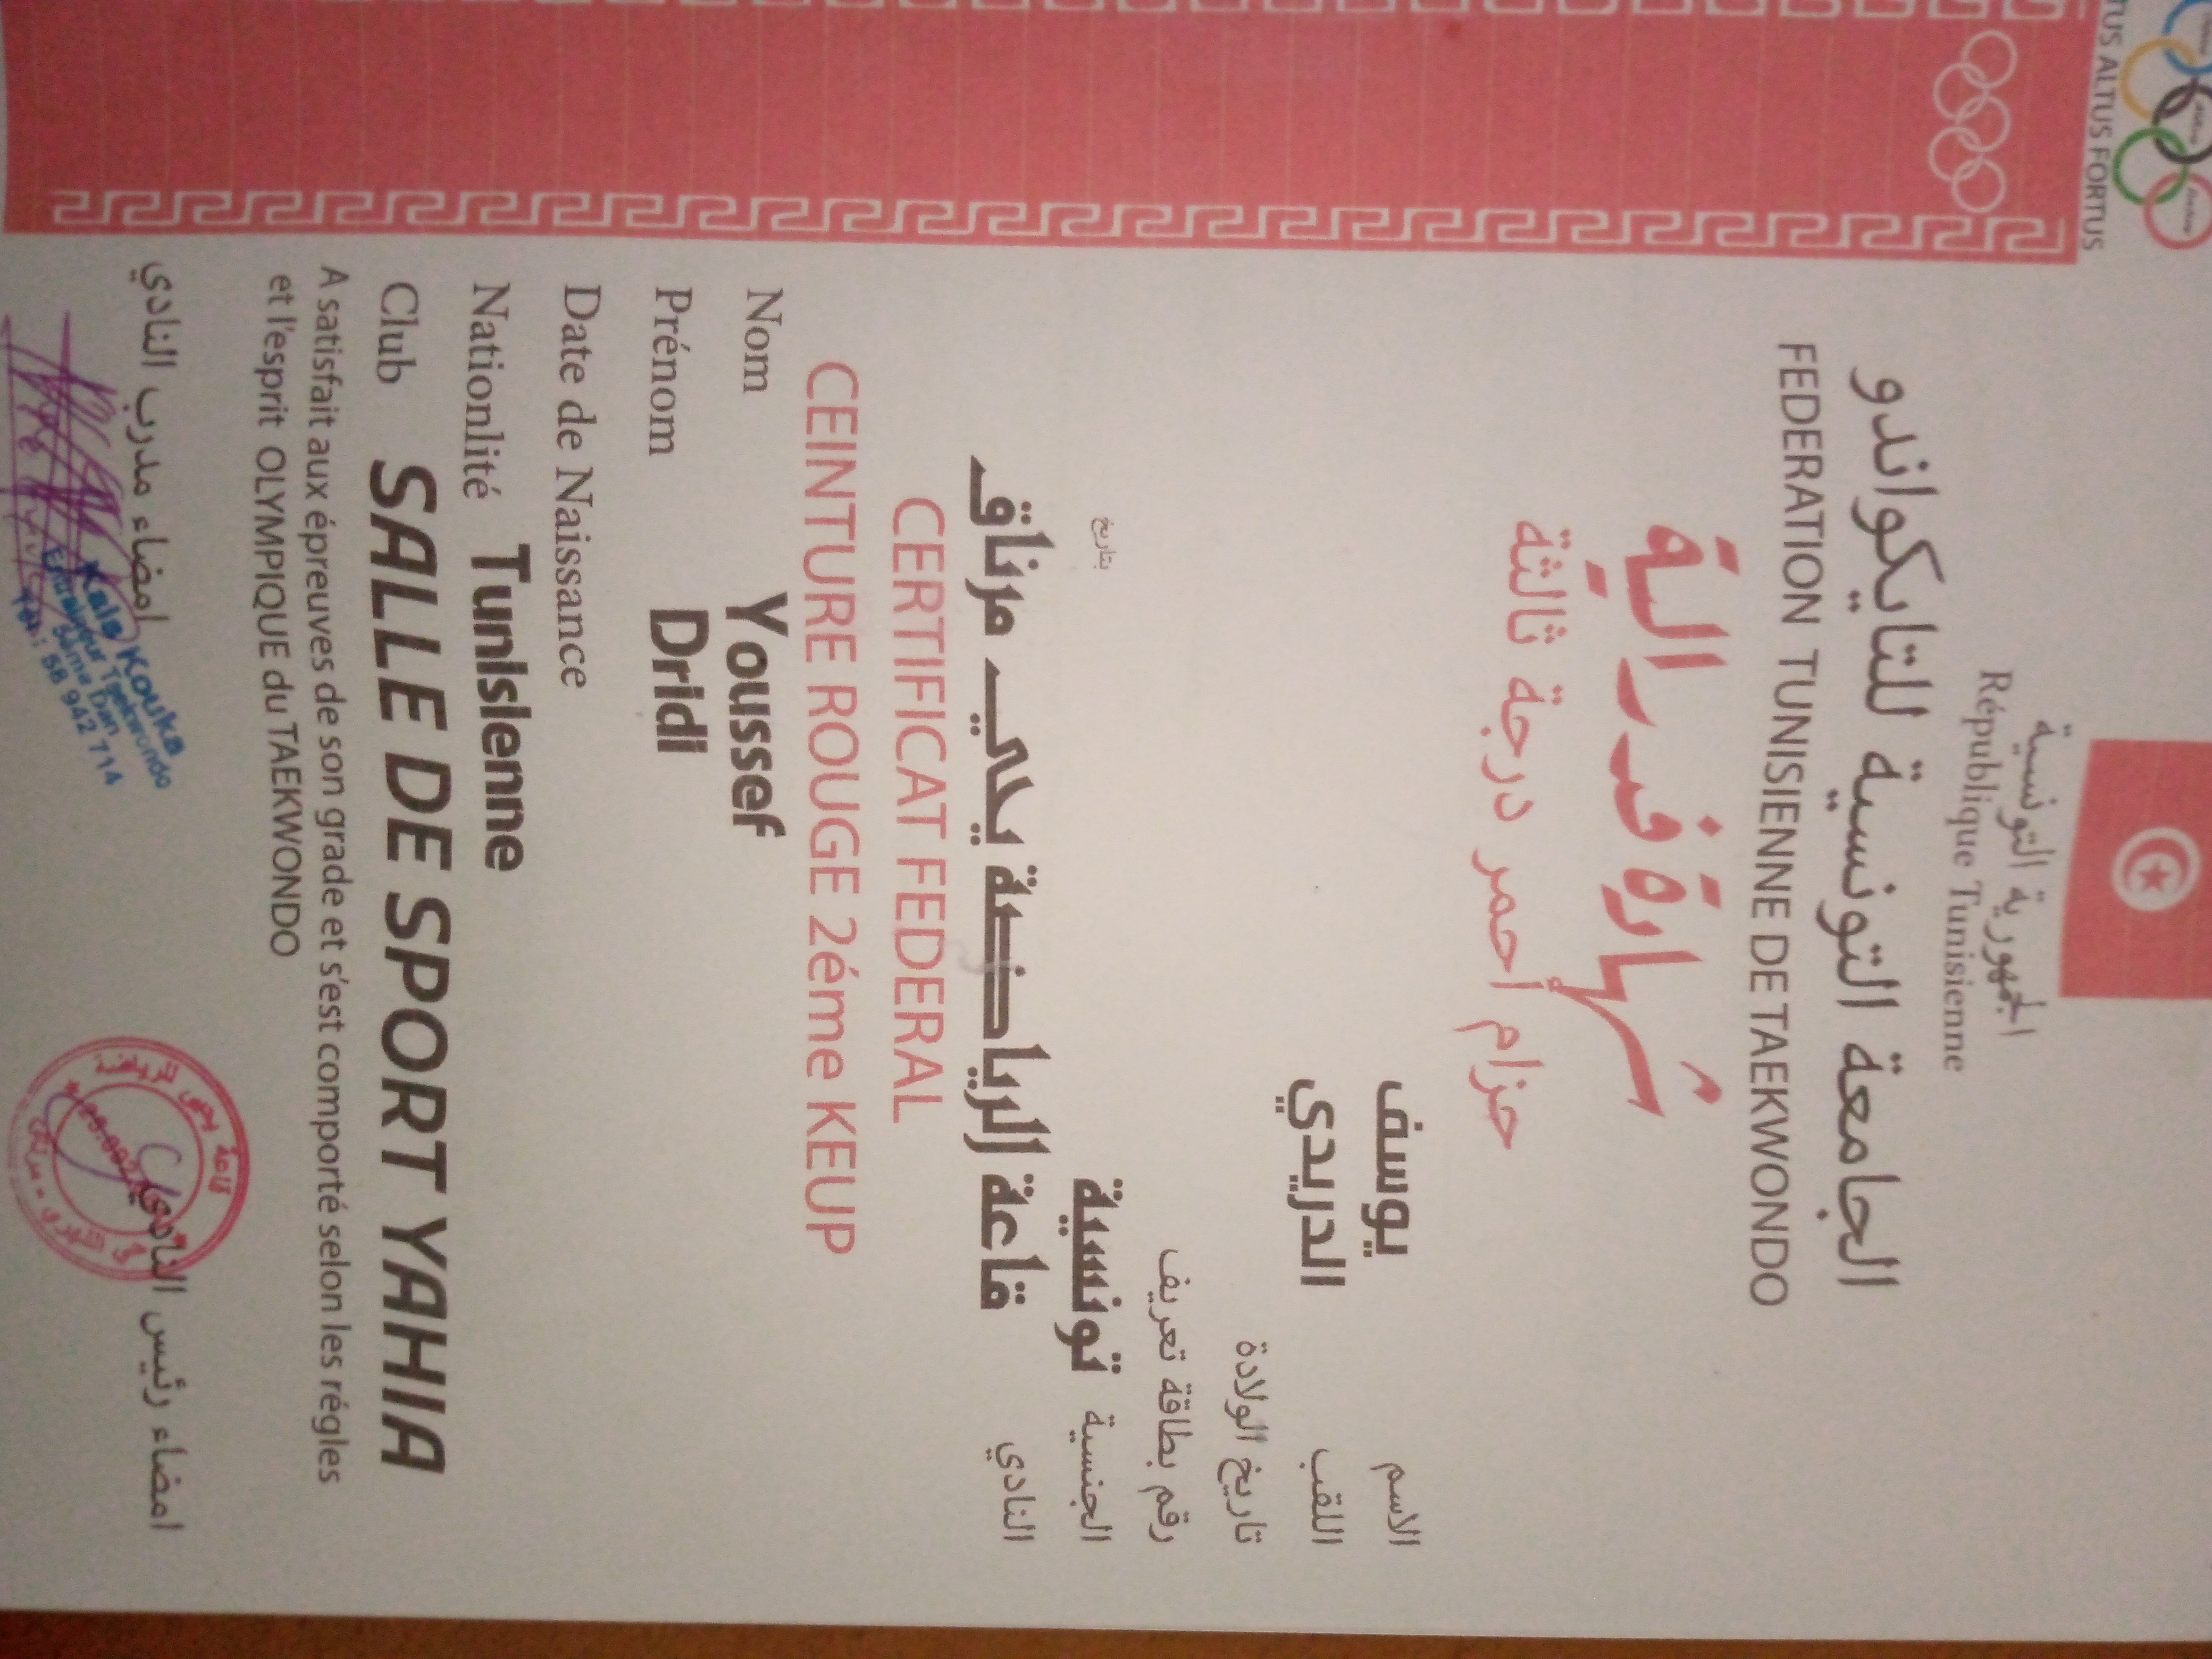 TUS ALTUS FORTUS
الجمهورية التونسية
République Tunisienne
الجامعة التونسية للتايكواندو
FEDERATION TUNISIENNE DE TAEKWONDO
شهادة فدرالية
حزام أحمر درجة ثالثة
الاسم يوسف
اللقب الدريدي
تاريخ الولادة
رقم بطاقة تعريف بتاريخ
الجنسية تونسية
النادي قاعة الرياضة يحي مرناق
CERTIFICAT FEDERAL
CEINTURE ROUGE 2éme KEUP
Nom Youssef
Prénom Dridi
Date de Naissance
Nationlité Tunisienne
Club SALLE DE SPORT YAHIA
A satisfait aux épreuves de son grade et s'est comporté selon les régles
et l'esprit OLYMPIQUE du TAEKWONDO
امضاء مدرب النادي امضاء رئيس النادي
Kais Kouka
Entraineur Taekwondo
Dan
58 942 714
قاعة يحيى للرياضة